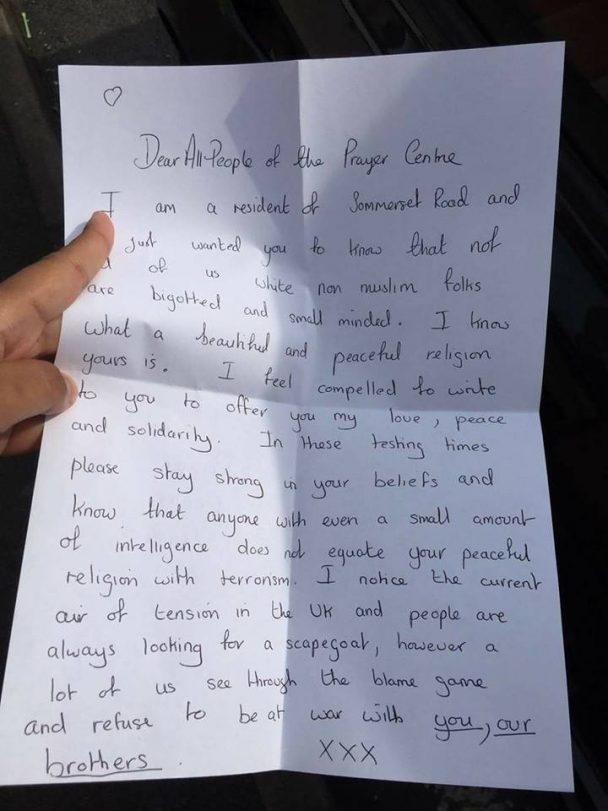 Dear All People of the Prayer Centre
I am a resident of Sommerset Road and
just wanted you to know that not
of us white non muslim folks
are bigotted and small minded. I know
what a beautiful and peaceful religion
yours is. I feel compelled to write
to you to offer you my love, peace
and solidarity. In these testing times
please stay strong in your beliefs and
know that anyone with even a small amount
of intelligence does not equate your peaceful
religion with terrorism. I notice the current
air of tension in the UK and people are
always looking for a scapegoat, however a
lot of us see through the blame game
and refuse to be at war with you, our
brothers. XXX